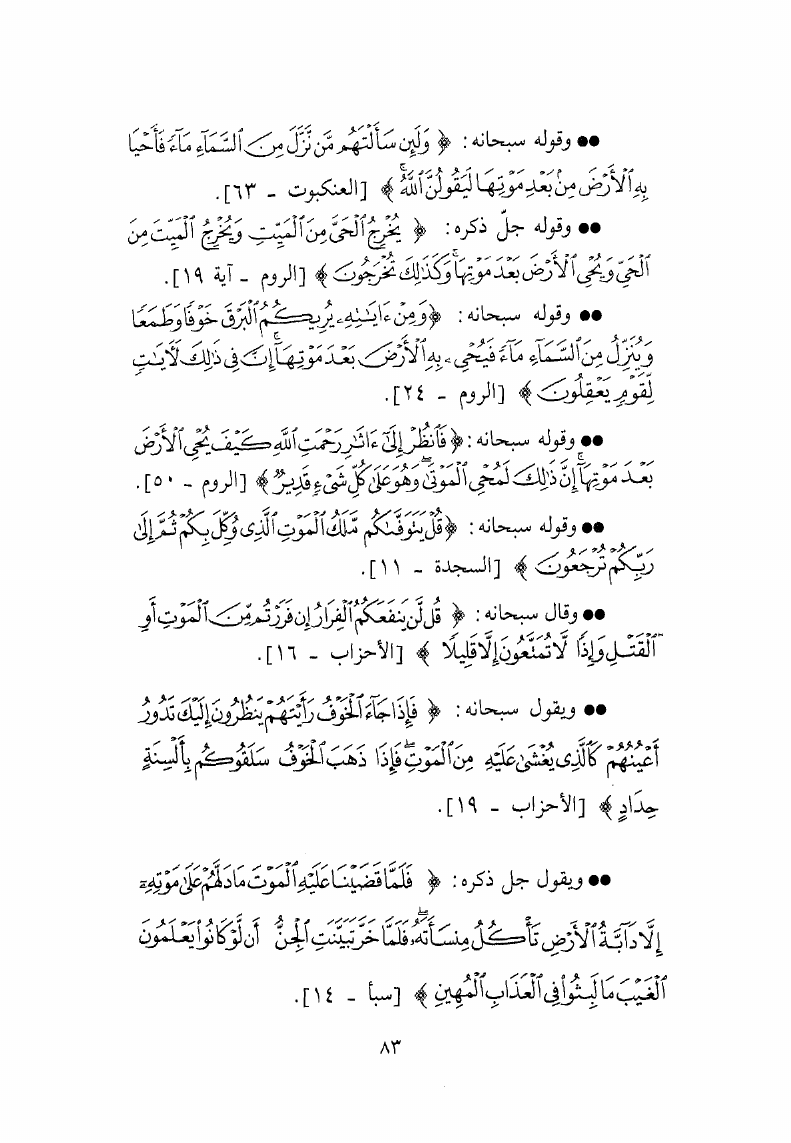 ●● وقوله سبحانه: ﴿ وَلَئِن سَأَلْتَهُم مَّن نَّزَّلَ مِنَ السَّمَآءِ مَآءً فَأَحْيَا
بِهِ الْأَرْضَ مِنْ بَعْدِ مَوْتِهَا لَيَقُولُنَّ اللَّهُ ﴾ [العنكبوت - ٦٣].
●● وقوله جلّ ذكره: ﴿ يُخْرِجُ الْحَيَّ مِنَ الْمَيِّتِ وَيُخْرِجُ الْمَيِّتَ مِنَ
الْحَيِّ وَيُحْيِ الْأَرْضَ بَعْدَ مَوْتِهَا وَكَذَٰلِكَ تُخْرَجُونَ ﴾ [الروم - آية ١٩].
●● وقوله سبحانه: ﴿وَمِنْ ءَايَٰتِهِ يُرِيكُمُ الْبَرْقَ خَوْفًا وَطَمَعًا
وَيُنَزِّلُ مِنَ السَّمَآءِ مَآءً فَيُحْيِ بِهِ الْأَرْضَ بَعْدَ مَوْتِهَا إِنَّ فِي ذَٰلِكَ لَآيَٰتٍ
لِّقَوْمٍ يَعْقِلُونَ ﴾ [الروم - ٢٤].
●● وقوله سبحانه: ﴿ فَانظُرْ إِلَىٰ ءَاثَٰرِ رَحْمَتِ اللَّهِ كَيْفَ يُحْيِ الْأَرْضَ
بَعْدَ مَوْتِهَا إِنَّ ذَٰلِكَ لَمُحْيِ الْمَوْتَىٰ وَهُوَ عَلَىٰ كُلِّ شَيْءٍ قَدِيرٌ ﴾ [الروم - ٥٠].
●● وقوله سبحانه: ﴿قُلْ يَتَوَفَّىٰكُم مَّلَكُ الْمَوْتِ الَّذِي وُكِّلَ بِكُمْ ثُمَّ إِلَىٰ
رَبِّكُمْ تُرْجَعُونَ ﴾ [السجدة - ١١].
●● وقال سبحانه: ﴿ قُل لَّن يَنفَعَكُمُ الْفِرَارُ إِن فَرَرْتُم مِّنَ الْمَوْتِ أَوِ
الْقَتْلِ وَإِذًا لَّا تُمَتَّعُونَ إِلَّا قَلِيلًا ﴾ [الأحزاب - ١٦].
●● ويقول سبحانه: ﴿ فَإِذَا جَآءَ الْخَوْفُ رَأَيْتَهُمْ يَنظُرُونَ إِلَيْكَ تَدُورُ
أَعْيُنُهُمْ كَالَّذِي يُغْشَىٰ عَلَيْهِ مِنَ الْمَوْتِ فَإِذَا ذَهَبَ الْخَوْفُ سَلَقُوكُم بِأَلْسِنَةٍ
حِدَادٍ ﴾ [الأحزاب - ١٩].
●● ويقول جل ذكره: ﴿ فَلَمَّا قَضَيْنَا عَلَيْهِ الْمَوْتَ مَا دَلَّهُمْ عَلَىٰ مَوْتِهِ
إِلَّا دَآبَّةُ الْأَرْضِ تَأْكُلُ مِنسَأَتَهُ فَلَمَّا خَرَّ تَبَيَّنَتِ الْجِنُّ أَن لَّوْ كَانُوا يَعْلَمُونَ
الْغَيْبَ مَا لَبِثُوا فِي الْعَذَابِ الْمُهِينِ ﴾ [سبأ - ١٤].
٨٣